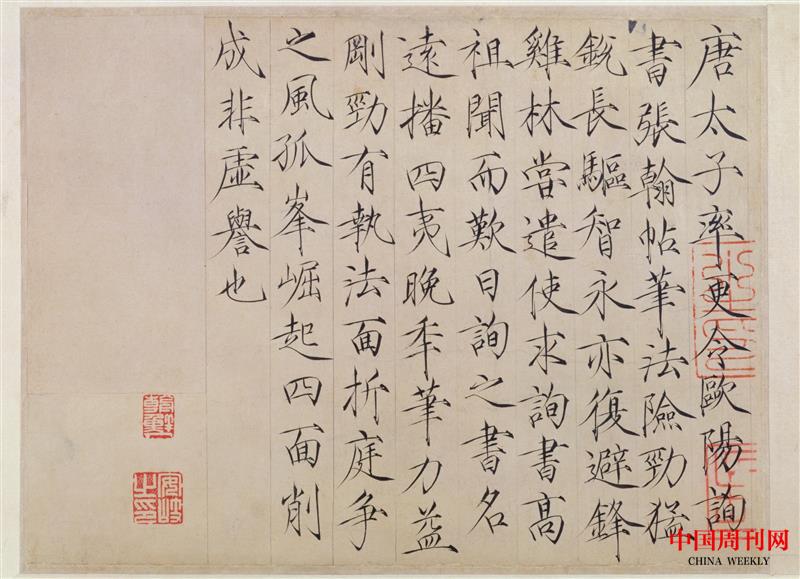 唐太子率更令歐陽詢
書張翰帖筆法險勁猛
銳長驅智永亦復避鋒
雞林嘗遣使求詢書高
祖聞而歎曰詢之書名
遠播四夷晚年筆力益
剛勁有執法面折庭爭
之風孤峯崛起四面削
成非虛譽也
安岐
之印
中国周刊网
CHINA WEEKLY